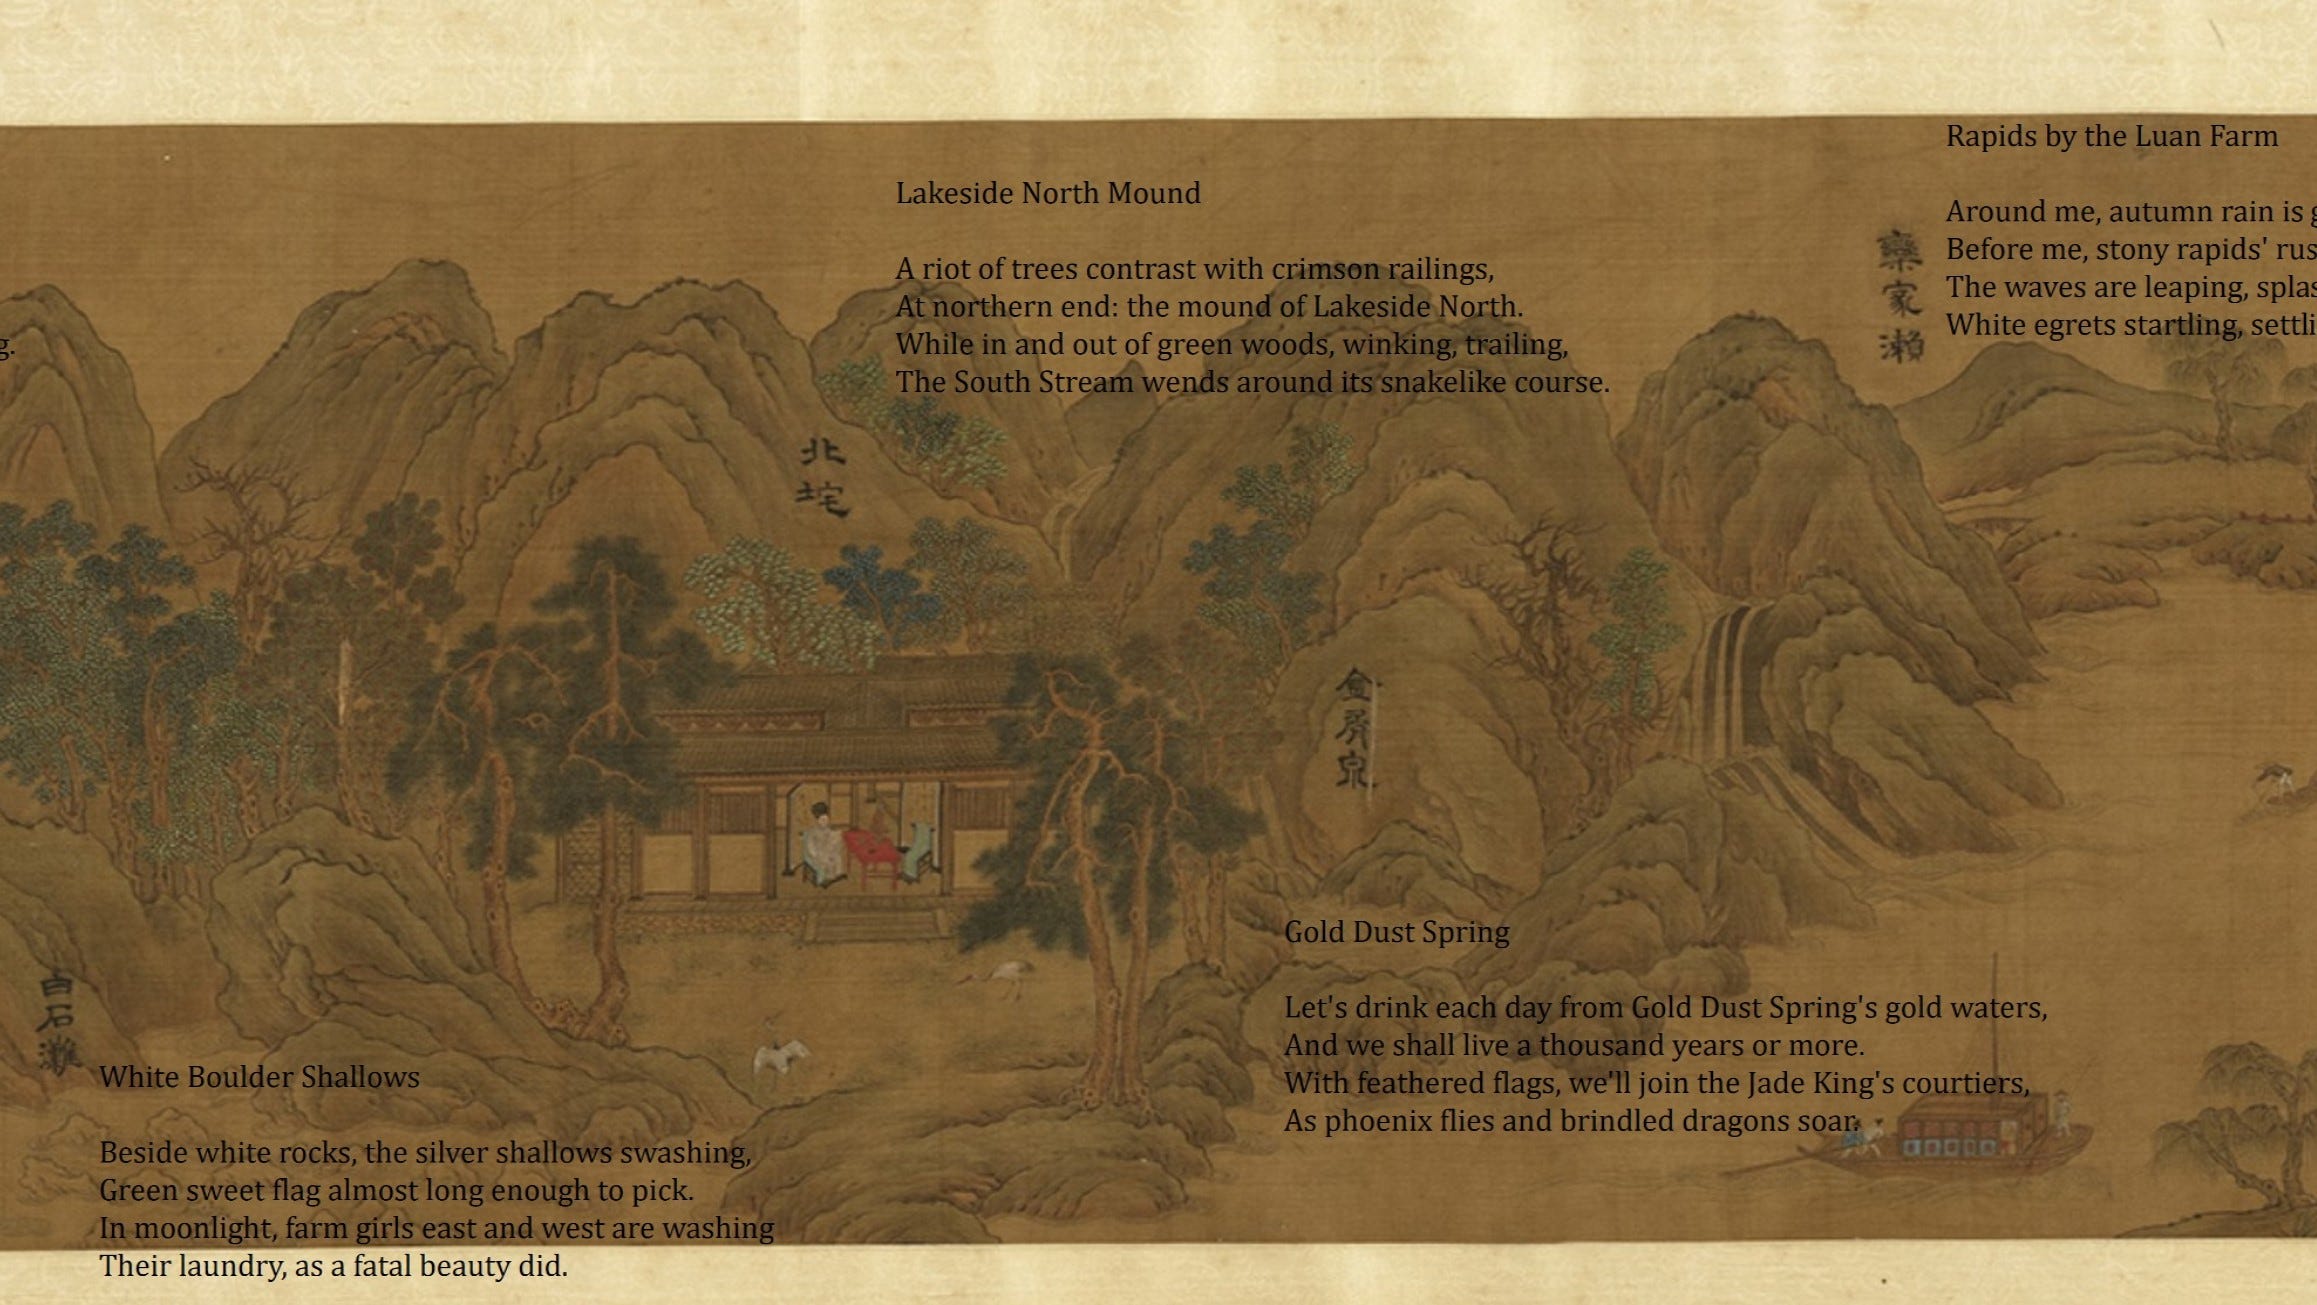 Rapids by the Luan Farm
Around me, autumn rain is g
Before me, stony rapids' rus
The waves are leaping, splas
White egrets startling, settli
欒家瀨
Lakeside North Mound
A riot of trees contrast with crimson railings,
At northern end: the mound of Lakeside North.
While in and out of green woods, winking, trailing,
The South Stream wends around its snakelike course.
g.
北垞
金屑泉
Gold Dust Spring
Let's drink each day from Gold Dust Spring's gold waters,
And we shall live a thousand years or more.
With feathered flags, we'll join the Jade King's courtiers,
As phoenix flies and brindled dragons soar.
白石灘
White Boulder Shallows
Beside white rocks, the silver shallows swashing,
Green sweet flag almost long enough to pick.
In moonlight, farm girls east and west are washing
Their laundry, as a fatal beauty did.